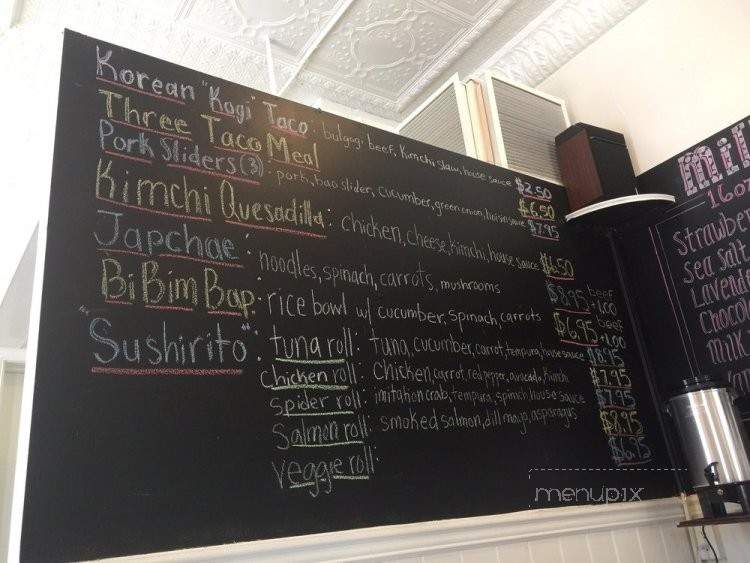 Korean "Kogi" Taco: bulgogi beef, Kimchi slaw, house sauce $2.50
Three Taco Meal $6.50
Pork Sliders (3): pork, bao slider, cucumber, green onion, hoisin sauce $7.95
Kimchi Quesadilla: chicken, cheese, kimchi, house sauce $6.50
Japchae: noodles, spinach, carrots, mushrooms $8.95 beef +1.00
BiBim Bap: rice bowl w/ cucumber, spinach, carrots $6.95 beef +1.00
"Sushirito": tuna roll: tuna, cucumber, carrot, tempura, house sauce $8.95
chicken roll: chicken, carrot, red pepper, avocado, kimchi $7.95
spider roll: imitation crab, tempura, spinach, house sauce $7.95
Salmon roll: smoked salmon, dill mayo, asparagus $8.95
veggie roll: $6.95
Mil
16o
Strawbe
Sea Salt
Lavend
Chocol
Milk
menupix